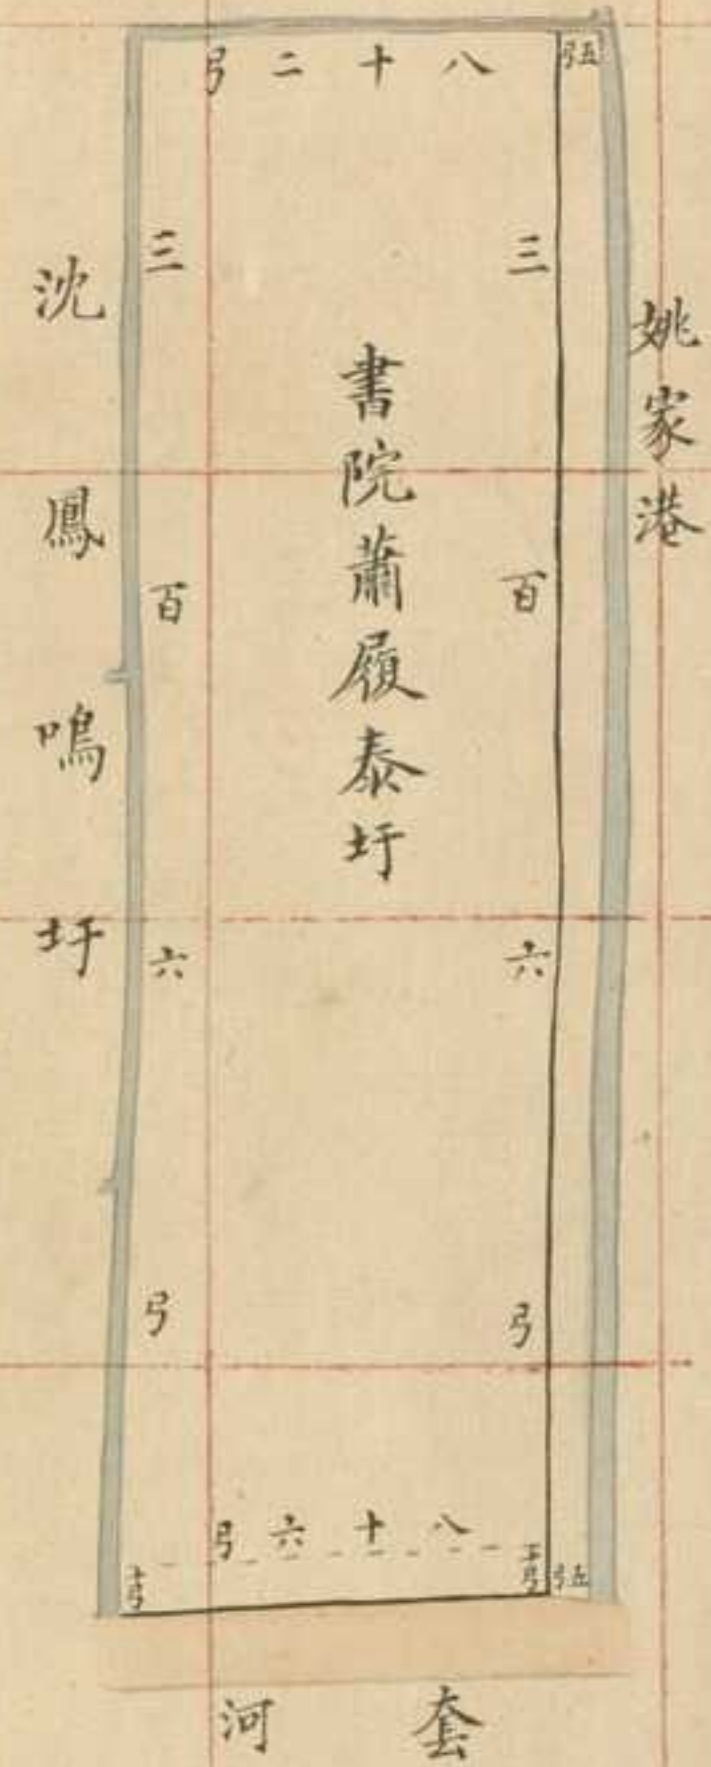 八十二弓
五弓
姚家港
三百六弓
書院蕭履泰圩
三百六弓
沈鳳鳴圩
八十六弓
五弓
十弓
套河